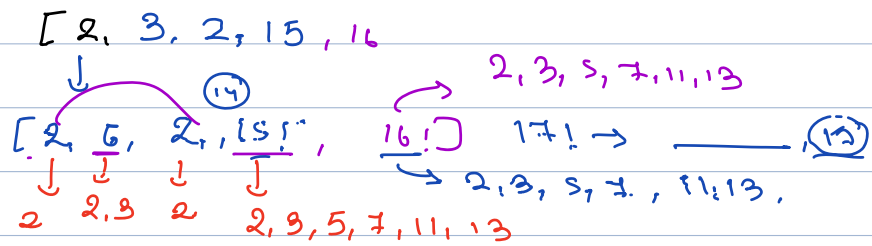 [2, 3, 2, 15, 16
2, 3, 5, 7, 11, 13
14
[2, 6, 2, 15!, 16!] 17! →
2, 3, 5, 7, 11, 13,
2 2,3 2 2, 3, 5, 7, 11, 13